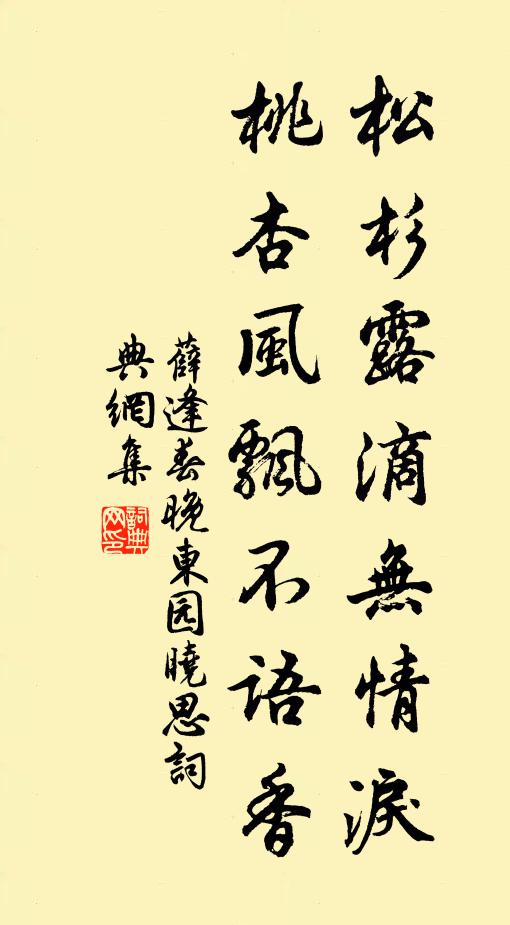 松杉露滴無情淚
桃杏風飄不語香
薛逢春晚東园曉思詞
典網集
詞典网印